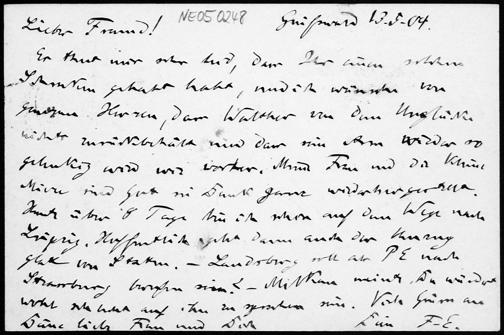 NE050248
Greifswald 13.5.04.
Lieber Freund!
Es thut mir sehr leid, dass Ihr einen solchen
Schrecken gehabt habt, und ich wünsche von
ganzem Herzen, dass Walther von dem Unglücke
nichts zurückbehält und dass sein Arm wieder so
gelenkig wird wie vorher. Meine Frau und die kleine
sind Gott sei Dank ganz wiederhergestellt.
Heute über 8 Tage bin ich schon auf dem Wege nach
Leipzig. Hoffentlich geht dann auch der Umzug
glatt von Statten. – Landsberg soll als PE nach
Strassburg berufen sein! – meint, Du würdest
wohl auf ihn zu sprechen sein. Viele Grüsse an
Deine liebe Frau und Dich Dein F. E.